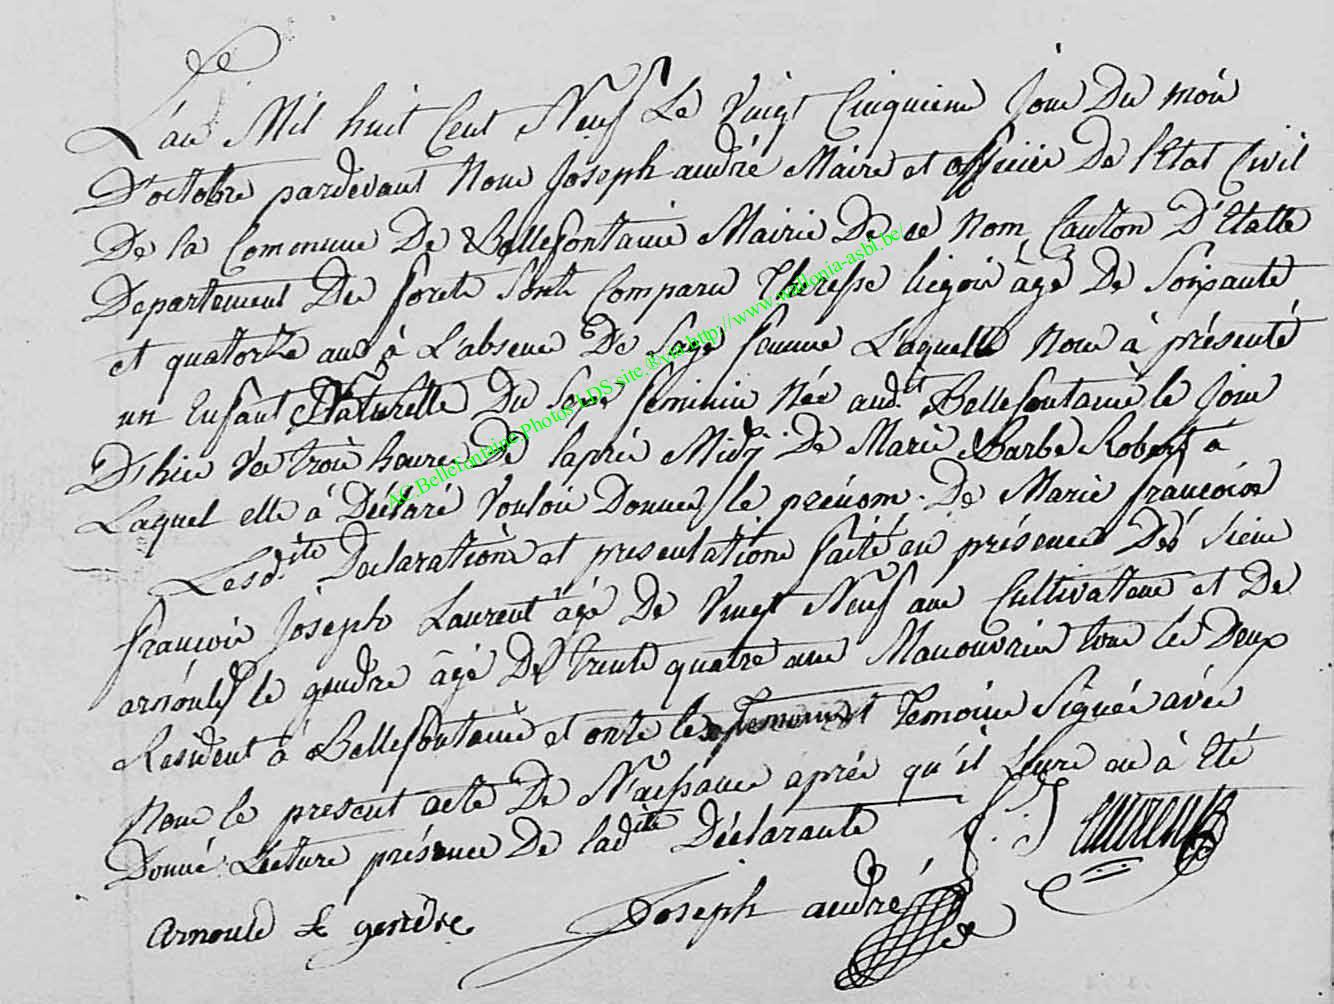 L'an Mil huit Cent Neuf Le Vingt Cinquieme Jour Du mois
D'octobre pardevant Nous Joseph andré Maire et officier De l'Etat Civil
De la Commune De Bellefontaine Mairie De ce Nom Canton D'Etalle
Departement Des forets Sont Comparu Theresse liegois âgé De Soixante
et quatorze ans à L'absence De Sage femme Laquelle Nous à présenté
un Enfant Naturelle Du Sexe féminin Née audit Bellefontaine le Jour
D'hier Ver trois heures De l'après Midÿ De Marie Barbe Robert à
Laquel elle à Déclaré Vouloir Donner le prénom De Marie françoise
Lesdite Declaration et presentation faite en présence Des Sieur
françois Joseph Laurent âgé De Vingt Neuf ans Cultivateur et De
arnould le gendre âgé De trente quatre ans Manouvrier tous les Deux
Resident à Bellefontaine et onte les Temoins Signés avec
Nous le present acte De Naissance après qu'il Leure en à Eté
Donné Lecture présence De ladite Déclarante
F. J Laurent
Arnould Le gendre Joseph andré
AC.Bellefontaine.Photos LDS site via http://www.wallonia-asbl.be/